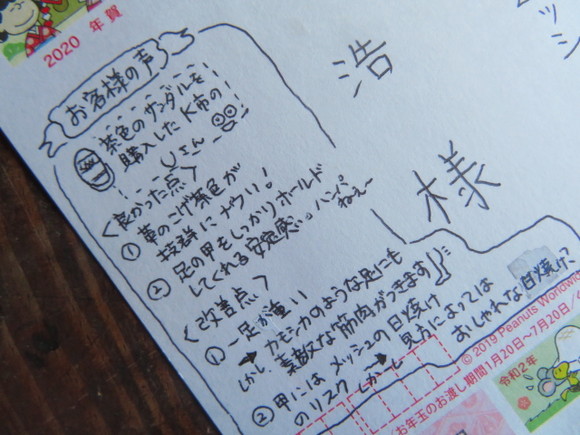 2020 年賀
ッシ
浩
様
お客様の声
茶色のサンダルを
購入したK市の
Uさん
<良かった点>
① 革のこげ茶色が
抜群にナウい!
② 足の甲をしっかりホールド
してくれる安定感。ハンパ
ねえ~
<改善点>
① 一足が重い
➡ カモシカのような足にも
しかし 素敵な筋肉がつきます
② 甲にはメッシュの日焼け
のリスク しかーし ➡
見方によっては
おしゃれな日焼け?
© 2019 Peanuts Worldwid
お年玉のお渡し期間1月20日~7月20日/
令和2年